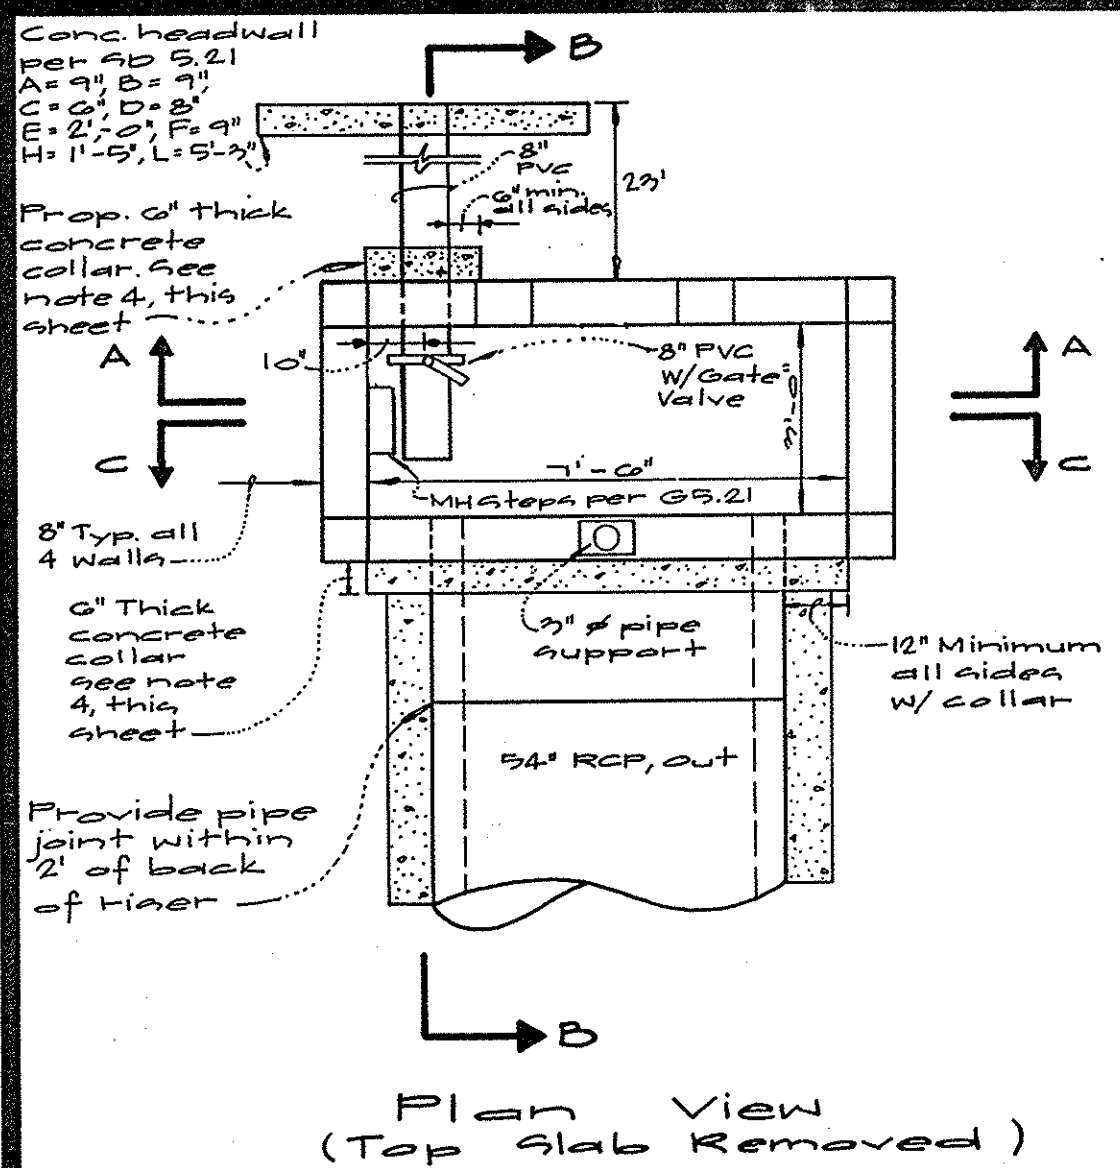 Conc. headwall
per SD 5.21
A= 9", B= 9",
C= 6", D= 8"
E= 2'-0", F= 9"
H= 1'-5", L= 5'-3"
B
8"
PVC
6" min.
all sides
23'
Prop. 6" thick
concrete
collar. See
note 4, this
sheet
A
A
10"
8" PVC
W/Gate
Valve
3'-0"
C
C
7'-6"
MH Steps per G5.21
8" Typ. all
4 walls
6" Thick
concrete
collar
see note
4, this
sheet
3" ø pipe
support
12" Minimum
all sides
w/ collar
54" RCP, out
Provide pipe
joint within
2' of back
of riser
B
Plan View
(Top Slab Removed)